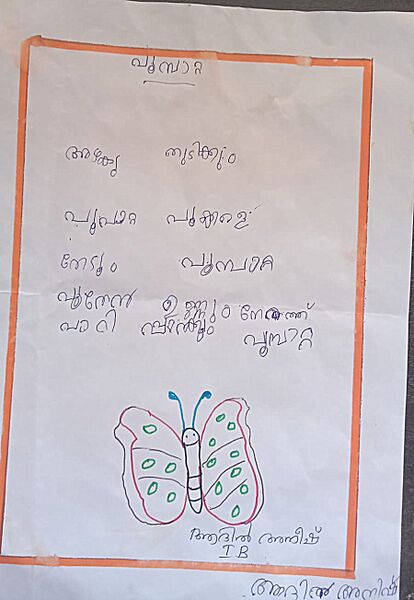 പൂമ്പാറ്റ
അഴകു തുടിക്കും
പൂമ്പാറ്റ പൂക്കളെ
തേടും പൂമ്പാറ്റ
പൂന്തേൻ ഉണ്ണും നേരത്ത്
പാറി പൂമ്പാറ്റ
ആദിൽ അനീഷ്
I B
ആദിൽ അനീഷ്